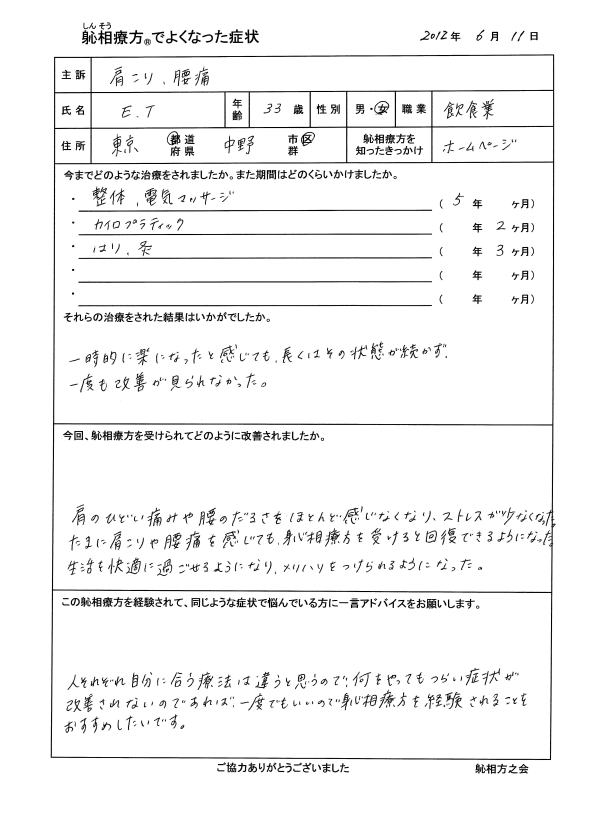 しんそう
躰相療方®でよくなった症状 2012年 6月 11日
主訴 肩こり、腰痛
氏名 E.T 年齢 33歳 性別 男・女 職業 飲食業
住所 東京 都道府県 中野 市区群 躰相療方を知ったきっかけ ホームページ
今までどのような治療をされましたか。また期間はどのくらいかけましたか。
・ 整体、電気マッサージ ( 5年 ヶ月)
・ カイロプラティック ( 年 2ヶ月)
・ はり、灸 ( 年 3ヶ月)
・ ( 年 ヶ月)
・ ( 年 ヶ月)
それらの治療をされた結果はいかがでしたか。
一時的に楽になったと感じても、長くはその状態が続かず、
一度も改善が見られなかった。
今回、躰相療方を受けられてどのように改善されましたか。
肩のひどい痛みや腰のだるさをほとんど感じなくなり、ストレスが少なくなった。
たまに肩こりや腰痛を感じても、躰相療方を受けると回復できるようになった。
生活を快適に過ごせるようになり、メリハリをつけられるようになった。
この躰相療方を経験されて、同じような症状で悩んでいる方に一言アドバイスをお願いします。
人それぞれ自分に合う療法は違うと思うので、何をやってもつらい症状が
改善されないのであれば、一度でもいいので躰相療方を経験されることを
おすすめしたいです。
ご協力ありがとうございました 躰相方之会